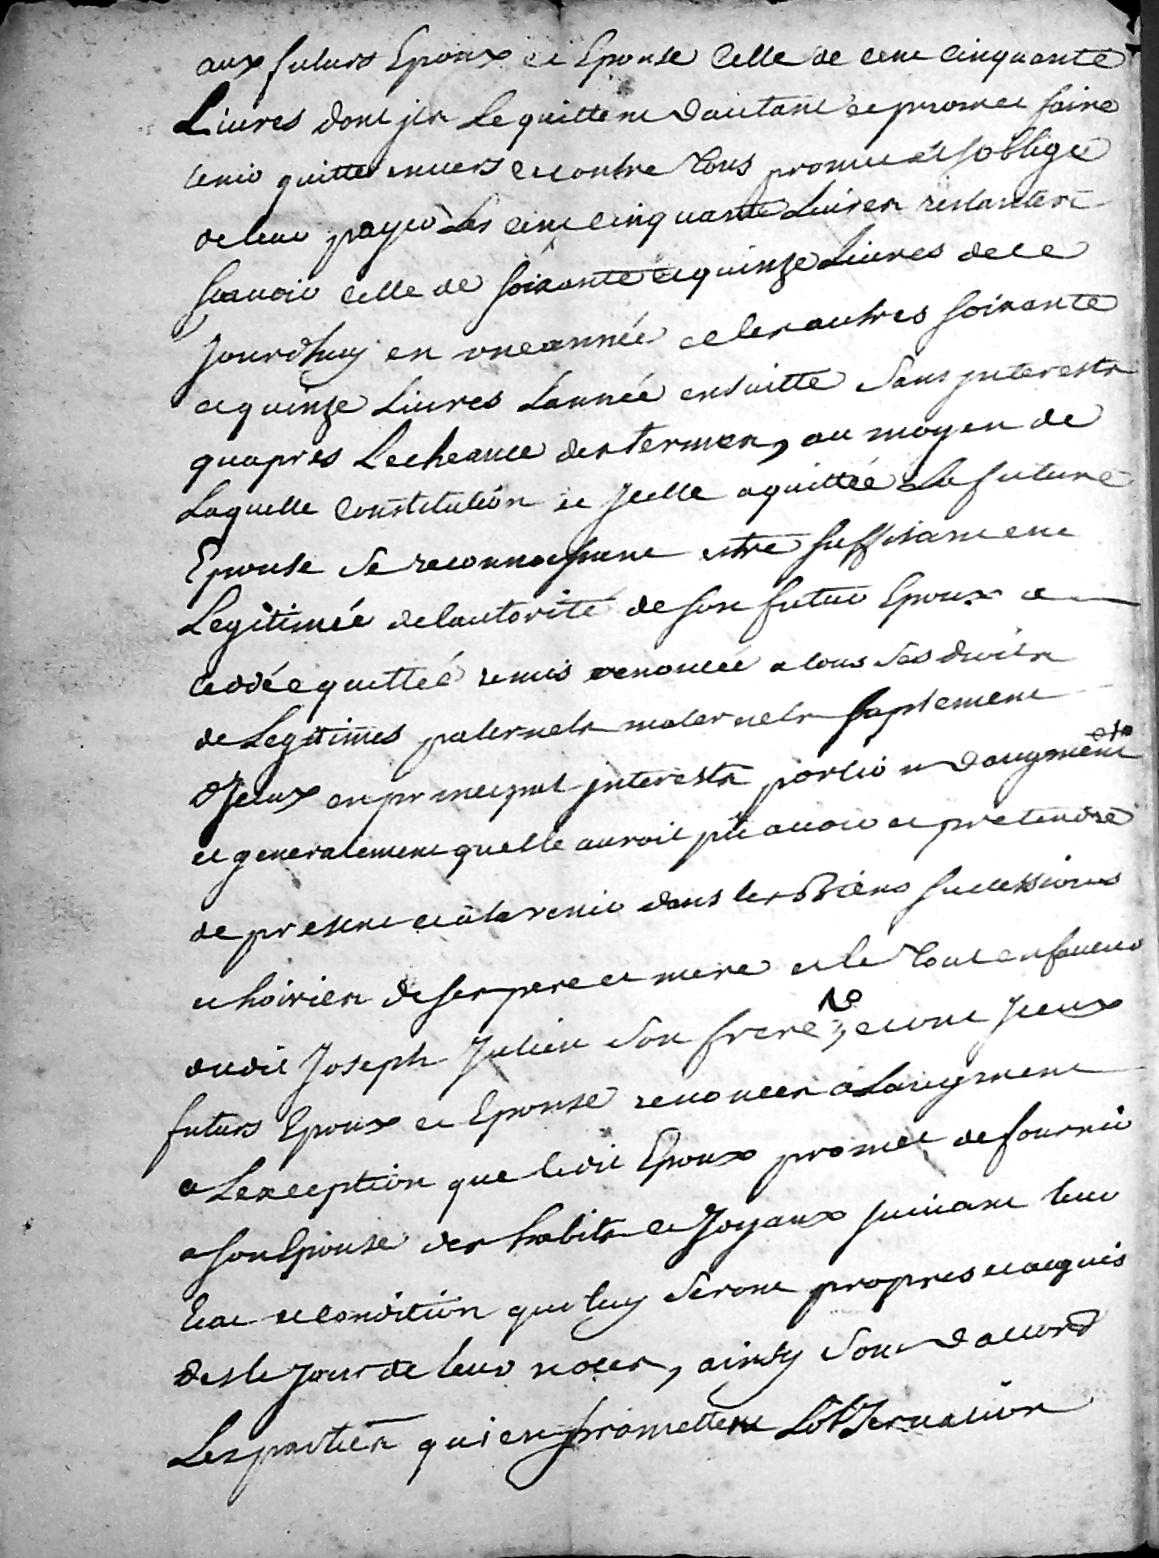 aux futurs Epoux et Epouse Celle de cent Cinquante
Livres dont jls Le quittent dautant et promet faire
tenir quittes envers et contre tous promet et soblige
de leur payer Les cent Cinquante Livres restantes
scauoir Celle de soixante et quinze Livres de ce
jourdhuy en une année et les autres soixante
et quinze Livres Lannée ensuitte Sans jnterests
quapres Lecheance des termes, au moyen de
Laquelle Constitution et jcelle aquittée La future
Epouse Se reconnoissant estre suffisament
Legitimée de lautorité de son futur Epoux a
cedé quitté remis renoncé a tous Ses droits
de Legitimes paternels maternels suplement
djceux en principal jnterests portion daugment
et generalement quelle auroit pû auoir et pretendre
de present et a lavenir dans les Biens successions
et hoiries de ses pere et mere et le tout en faueur
dudit Joseph Julien Son frere, et ont jceux
futurs Epoux et Epouse renoncer a Laugment
a Lexception que ledit Epoux promet de fournir
a son Epouse des habits et Joyaux suivant leur
Etat et Condition qui luy Seront propres et acquis
des le jour de leur noces, ainsy Sont daccord
Les parties qui en promettent LobServation